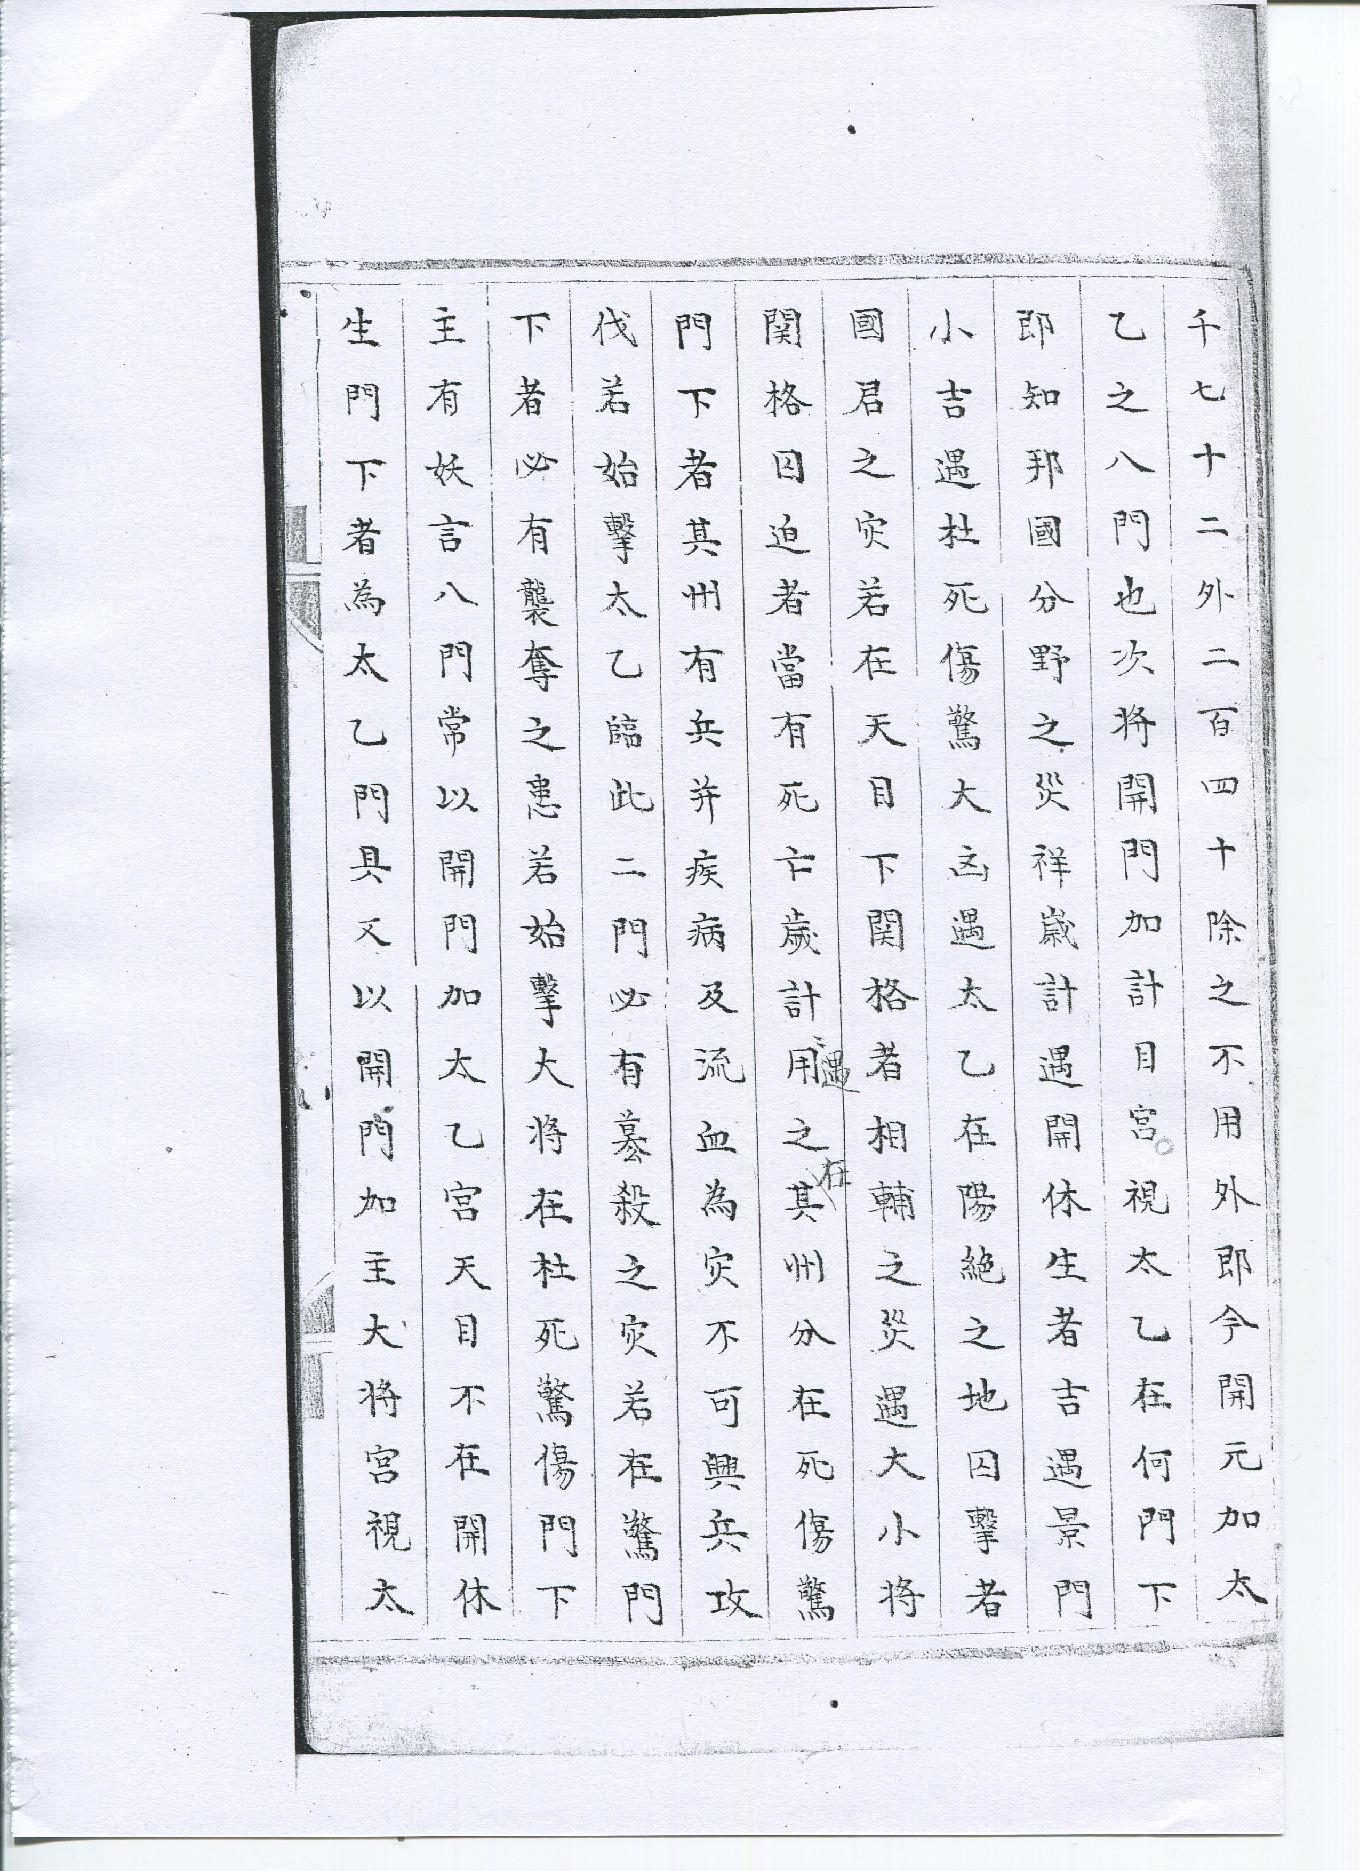 千七十二外二百四十除之不用外即今開元加太
乙之八門也次将開門加計目宫視太乙在何門下
即知邦國分野之災祥嵗計遇開休生者吉遇景門
小吉遇杜死傷驚大凶遇太乙在陽絶之地囚擊者
國君之灾若在天目下関格者相輔之災遇大小将
関格囚迫者當有死亡歲計用遇之其在州分在死傷驚
門下者其州有兵并疾病及流血為灾不可興兵攻
伐若始擊太乙臨此二門必有墓殺之灾若在驚門
下者必有襲奪之患若始擊大将在杜死驚傷門下
主有妖言八門常以開門加太乙宫天目不在開休
生門下者為太乙門具又以開門加主大将宫視太